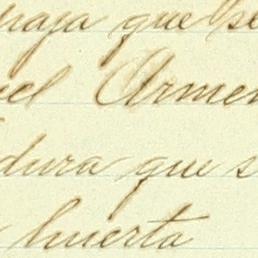 que se
Armen
dura que s
huerta